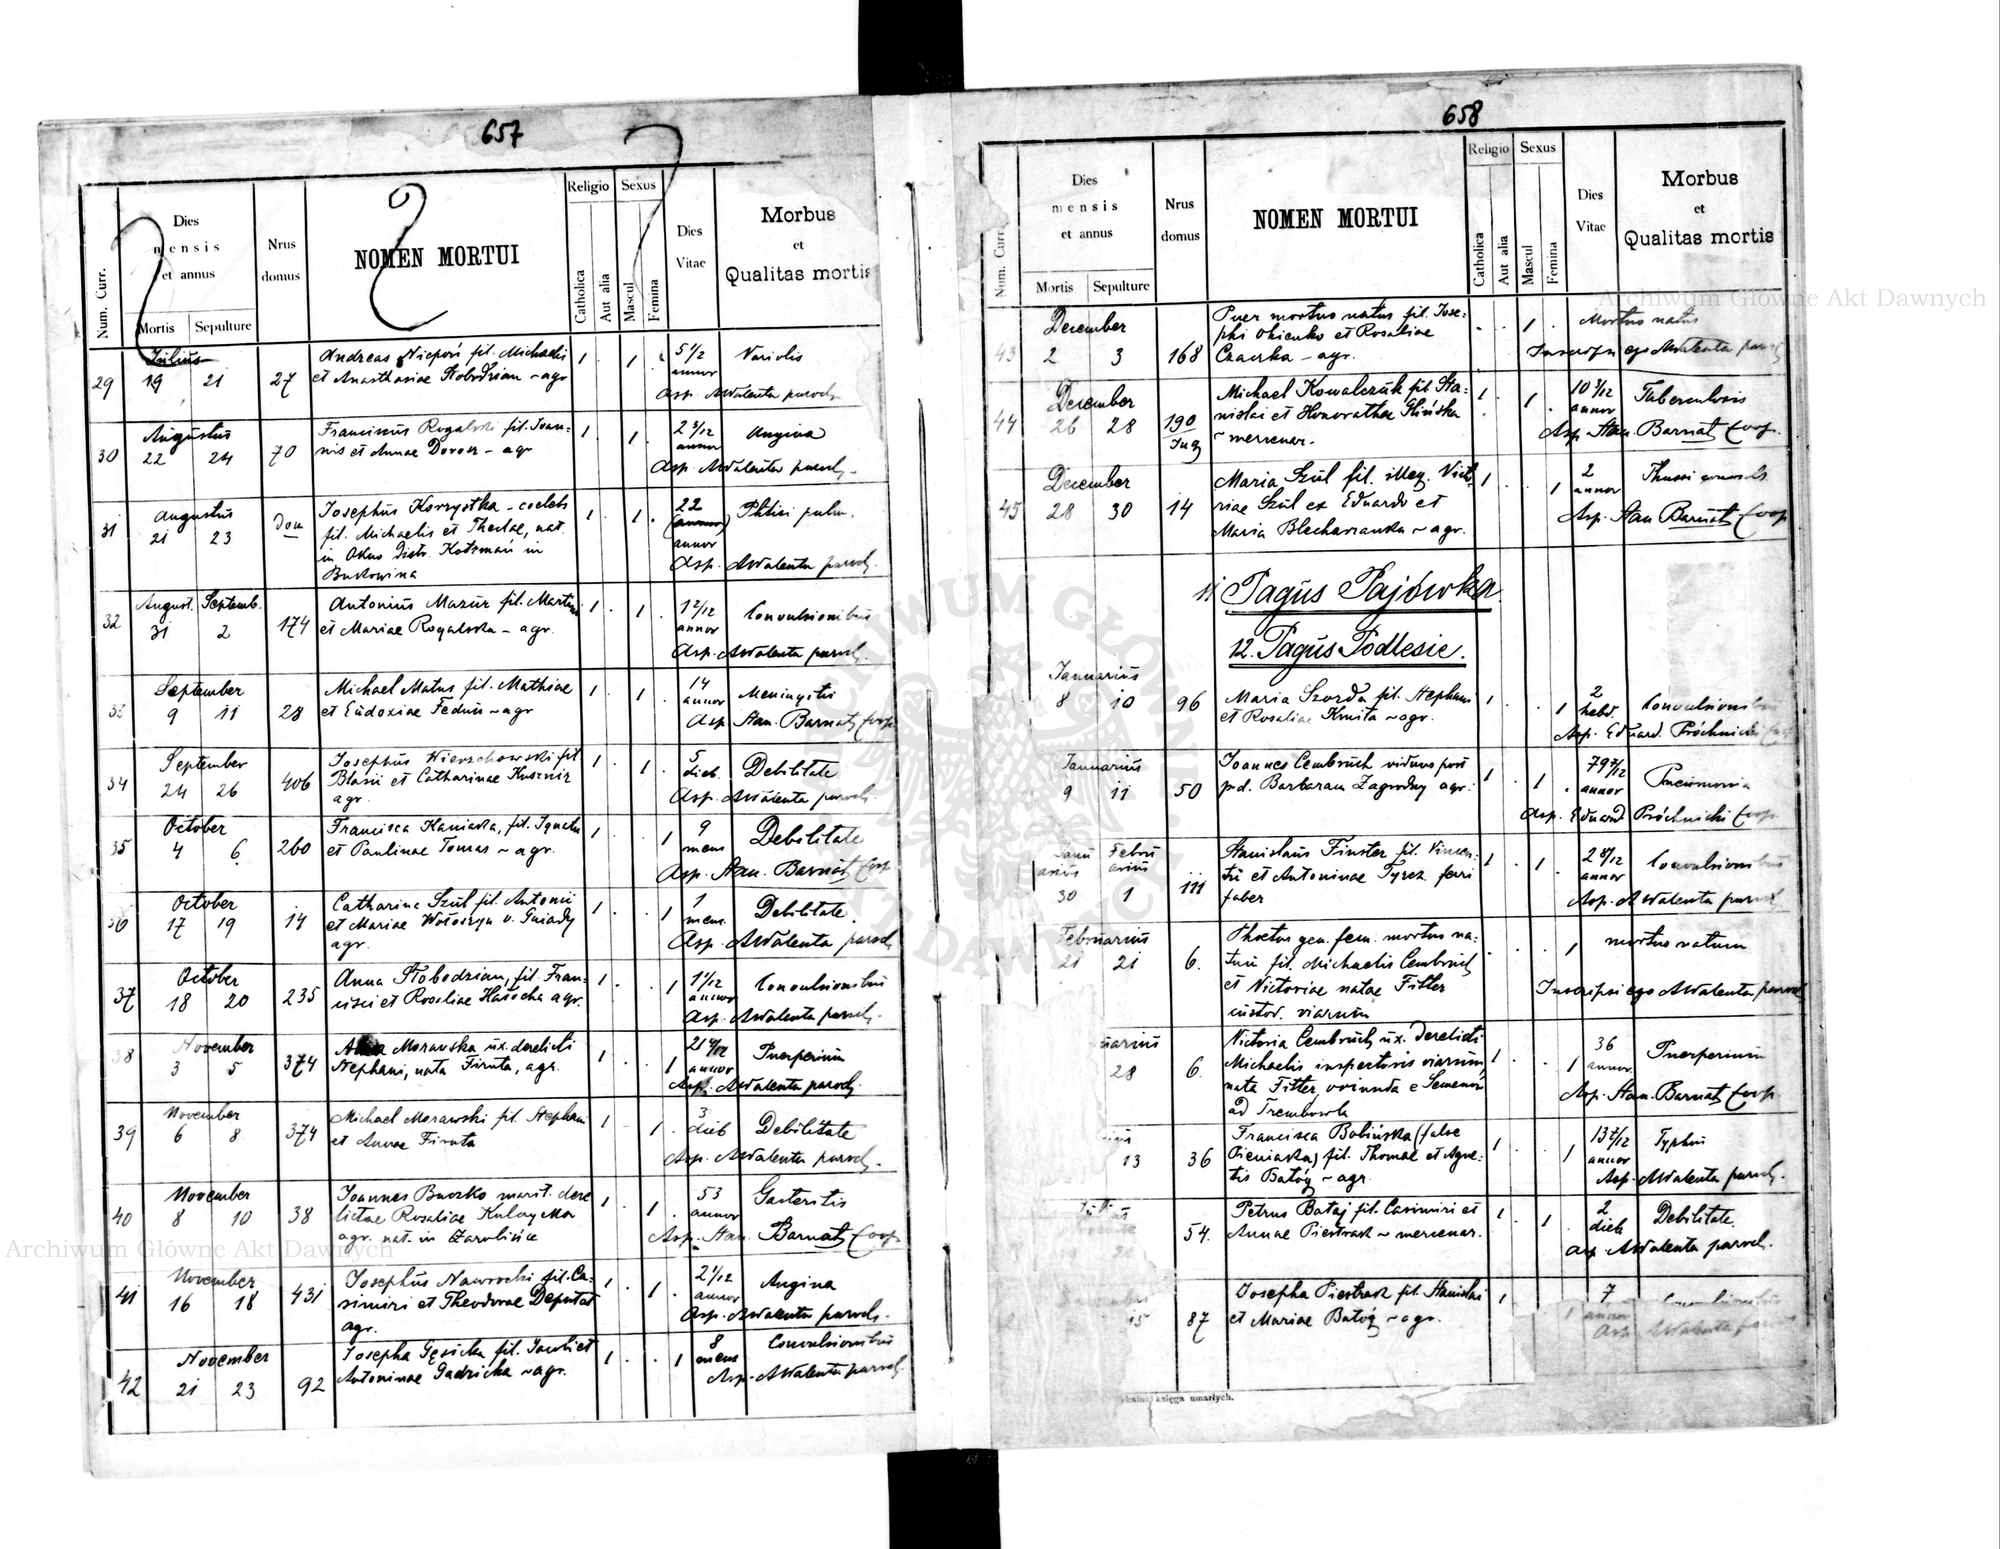 657
Num. Curr.
Dies
mensis
et annus
Mortis
Sepulture
Nrus
domus
NOMEN MORTUI
Religio
Catholica
Aut alia
Sexus
Mascul
Femina
Dies
Vitae
Morbus
et
Qualitas mortis
Julius
29 19 21 27
Andreas fil. Michaelis
et Anasthasiae Słobodzian ~ agr
1 1
5 1/2
annor
Variolis
Asp. AWalenta paroch.
Augustus
30 22 24 70
Franciscus Rogalski fil. Joan=
nis et Annae ~ agr
1 1
2 3/12
annor
Angina
Asp. AWalenta paroch.
Augustus
31 21 23 Dom
Josephus ~ coelebs
fil. Michaelis et Theclae, nat.
in Okno distr. Kotzmań in
Bukowina
1 1
22
annor
Phtisi pulm.
Asp. AWalenta paroch.
August. Septemb.
32 31 2 174
Antonius Mazur fil. Martini
et Mariae Rogalska ~ agr.
1 1
1 2/12
annor
Convulsionibus
Asp. AWalenta paroch.
September
33 9 11 28
Michael Matus fil. Mathiae
et Eudoxiae Fedun ~ agr
1 1
14
annor
Meningitis
Asp Stan. Barnaś Coop.
September
34 24 26 406
Josephus Wierzchowski fil
Blasii et Catharinae Kusznir
agr.
1 1
5
dieb.
Debilitate
Asp. AWalenta paroch.
October
35 4 6 260
Francisca Kaniaska, fil. Ignatii
et Paulinae Tomas ~ agr.
1 1
9
mens
Debilitate
Asp. Stan. Barnaś Coop
October
36 17 19 14
Catharina Szul fil. Antonii
et Mariae Wołoszyn v. Gniady
agr.
1 1
1
mens.
Debilitate
Asp. AWalenta paroch.
October
37 18 20 235
Anna Słobodzian, fil. Fran=
cisci et Rosaliae agr.
1 1
1 1/12
annor
Convulsionibus
Asp. AWalenta paroch.
November
38 3 5 374
Anna Morawska ux. derelicti
Stephani, nata Firuta, agr.
1 1
annor
Puerperium
Asp. AWalenta paroch.
November
39 6 8 374
Michael Morawski fil. Stephani
et Annae Firuta
1 1
3
dieb
Debilitate
Asp. AWalenta paroch.
November
40 8 10 38
Joannes Buczko marit. dere
lictae Rosaliae
agr. nat. in
1 1
53
annor
Gasteritis
Asp. Stan. Barnaś Coop.
November
41 16 18 431
Josephus Nawrocki fil. Ca=
simiri et Theodorae Deputat
agr.
1 1
2 1/12
annor
Angina
Asp. AWalenta paroch.
November
42 21 23 92
Josepha Gęsicka fil. Jacobi et
Antoninae Gadzicka ~ agr.
1 1
8
mens
Convulsionibus
Asp. AWalenta paroch.
658
Num. Curr.
Dies
mensis
et annus
Mortis
Sepulture
Nrus
domus
NOMEN MORTUI
Religio
Catholica
Aut alia
Sexus
Mascul
Femina
Dies
Vitae
Morbus
et
Qualitas mortis
December
43 2 3 168
Puer mortus natus fil. Jose=
phi et Rosaliae
Czaczka ~ agr.
1
Mortus natus
Inscripsi ego AWalenta paroch
December
44 26 28 190
Michael Kowalczuk fil. Sta=
nislai et Honorathae Glińska
~ mercenar.
1 1
10 3/12
annor
Tuberculosis
Asp. Stan. Barnaś Coop.
December
45 28 30 14
Maria Szul fil. illeg. Victo
riae Szul ex Eduardo et
Maria ~ agr.
1 1
2
annor
Asp. Stan Barnaś Coop
11 Pagus Pajówka.
12. Pagus Podlesie.
Januarius
8 10 96
Maria Szorda fil. Stephani
et Rosaliae Kmita ~ agr.
1 1
2
hebd.
Convulsionibus
Asp. Eduard. Próchnicki
Januarius
9 11 50
Joannes Cembruch viduus post
p.d. Barbaram Zagrodny agr.
1 1
annor
Pneumonia
Asp. Eduard Próchnicki Coop.
Janu Febru
arius arius
30 1 111
Stanislaus Finster fil. Vincen=
tii et Antoninae ferri
faber
1 1
annor
Convulsionibus
Asp. AWalenta paroch
Februarius
21 21 6.
Phoetus gen. fem. mortus na=
tus fil. Michaelis Cembruch
et Victoriae natae Fitter
custod. viarum
1
mortus natum
Inscripsi ego AWalenta paroch
uarius
28 6.
Victoria Cembruch ux. derelicti
Michaelis inspectoris viarum,
nata Fitter, oriunda e Semenów
ad Trembowla
1 1
36
annor.
Puerperium
Asp. Stan. Barnaś Coop.
13 36
Francisca Babińska (false
Pieniaska) fil. Thomae et Agne=
tis Batóg ~ agr.
1 1
annor
Typhus
Asp. AWalenta paroch.
54.
Petrus Bataj fil. Casimiri et
Annae Piestrak ~ mercenar.
1 1
2
dieb
Debilitate.
Asp AWalenta paroch.
15 87
Josepha Piestrak fil. Stanislai
et Mariae Batóg ~ agr.
1 1
7
annor
Convulsionibus
Asp. AWalenta
księga umarłych.
Archiwum Główne Akt Dawnych
Archiwum Główne Akt Dawnych
ARCHIWUM GŁÓWNE AKT DAWNYCH